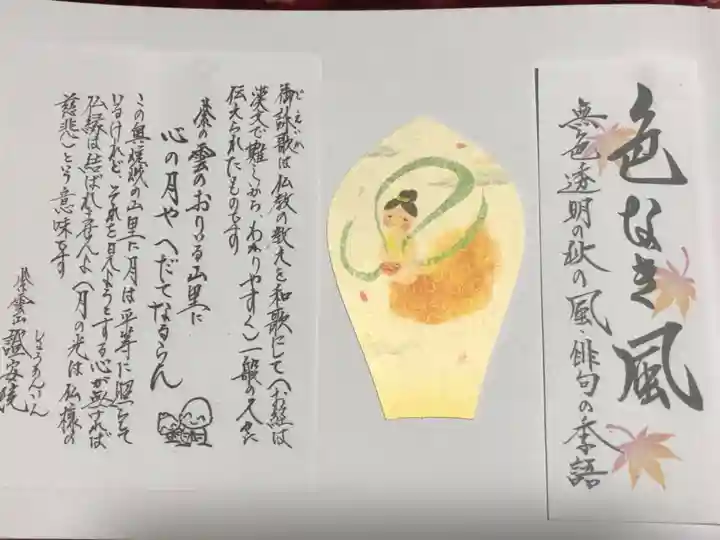 色なき風
無色透明の秋の風・俳句の季語
ごえいか
御詠歌は仏教の教えを和歌にして(お経は
漢文で難しから、わかりやすく)一般の人々に
伝えられたものです
紫の雲のおりゐる山里に
心の月やへだてなるらん
この奥焼畑の山里に月は平等に照らして
いるけれど、それを見ようとする心が無ければ
仏縁は結ばれませんよ(月の光は仏様の
慈悲)という意味です
しょうあんいん
紫雲山 證安院